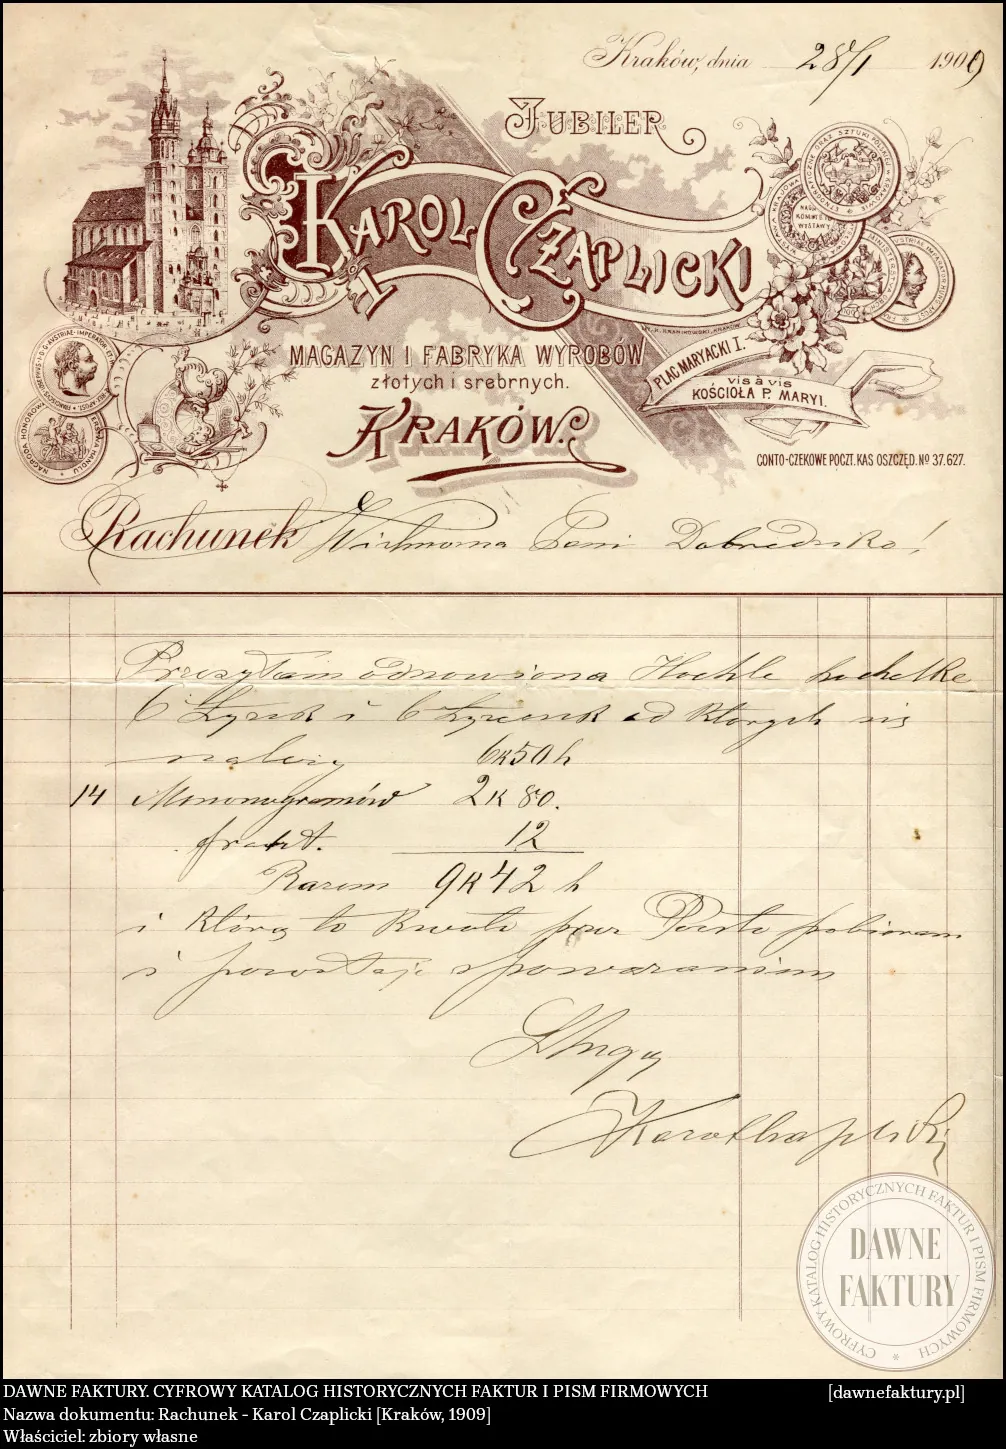 Kraków, dnia 28/1 1909
JUBILER
KAROL CZAPLICKI
MAGAZYN I FABRYKA WYROBÓW
złotych i srebrnych.
KRAKÓW.
PLAC MARYACKI I.
vis à vis
KOŚCIOŁA P. MARYI.
CONTO-CZEKOWE POCZT. KAS OSZCZĘD. No 37.627.
Rachunek Wielmożna Pani
Przesyłam odnowiona
6 Łyżek i 6 Łyżeczek od których się
należy 6K50h
14 Monogramów 2K 80.
frakt. 12
Razem 9K42h
i którą to kwotę przez Pocztę pobieram
i pozostaję z poważaniem
Sługa
Karol Czaplicki
DAWNE FAKTURY
CYFROWY KATALOG HISTORYCZNYCH FAKTUR I PISM FIRMOWYCH
DAWNE FAKTURY. CYFROWY KATALOG HISTORYCZNYCH FAKTUR I PISM FIRMOWYCH [dawnefaktury.pl]
Nazwa dokumentu: Rachunek - Karol Czaplicki [Kraków, 1909]
Właściciel: zbiory własne